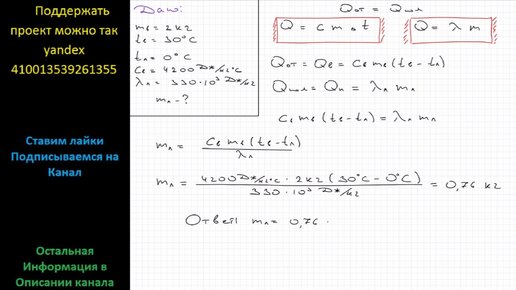 Поддержать
проект можно так
yandex
410013539261355
Ставим лайки
Подписываемся на
Канал
Остальная
Информация в
Описании канала
Дано:
mв = 2 кг
tв = 30°C
tл = 0°C
Cв = 4200 Дж/кг°C
λл = 330·10³ Дж/кг
mл - ?
Q = c m Δt
Q = λ m
Qот = Qв = Cв mв (tв - tл)
Qпол = Qл = λл mл
Cв mв (tв - tл) = λл mл
mл = Cв mв (tв - tл) / λл
mл = 4200 Дж/кг°C · 2 кг (30°C - 0°C) / 330·10³ Дж/кг = 0,76 кг
Ответ: mл = 0,76